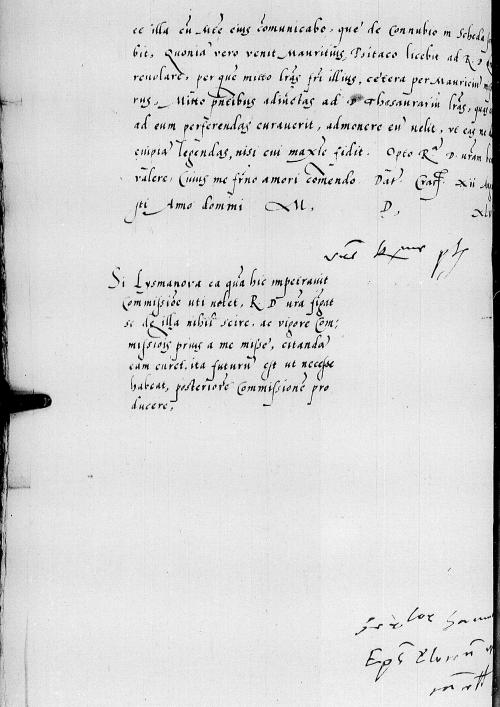 ee illa cũ Mte eius cõmunicabo, que de Connubio in Scheda
bit, Quoniã vero venit Mauritius Psitaco licebit ad R. D
reuolare, per quẽ mitto lrãs fr̃i illius, cetera per Mauriciũ
rus, Mitto pñtibus adiũctas ad D Thesaurariũ lrãs, quas
ad eum perferendas curauerit, admonere eũ uelit, ut eas ne
cuiptã legendas, nisi cui maxĩe fidit. Opto Rm̃ D. uram
valere, Cuius me fr̃no amori cõmendo Dat̃ Crac̃ XII Au
sti Anno domini M. D. XL
Si Lysmanova ea quã hic impetrauit
Commissiõe uti uolet, R D ura fingat
se de illa nihil scire, ac vigore Com:
missiõis prius a me misse, citandã
eam curet, ita futurũ est ut necesse
habeat, posteriorẽ Commissionẽ pro
ducere,